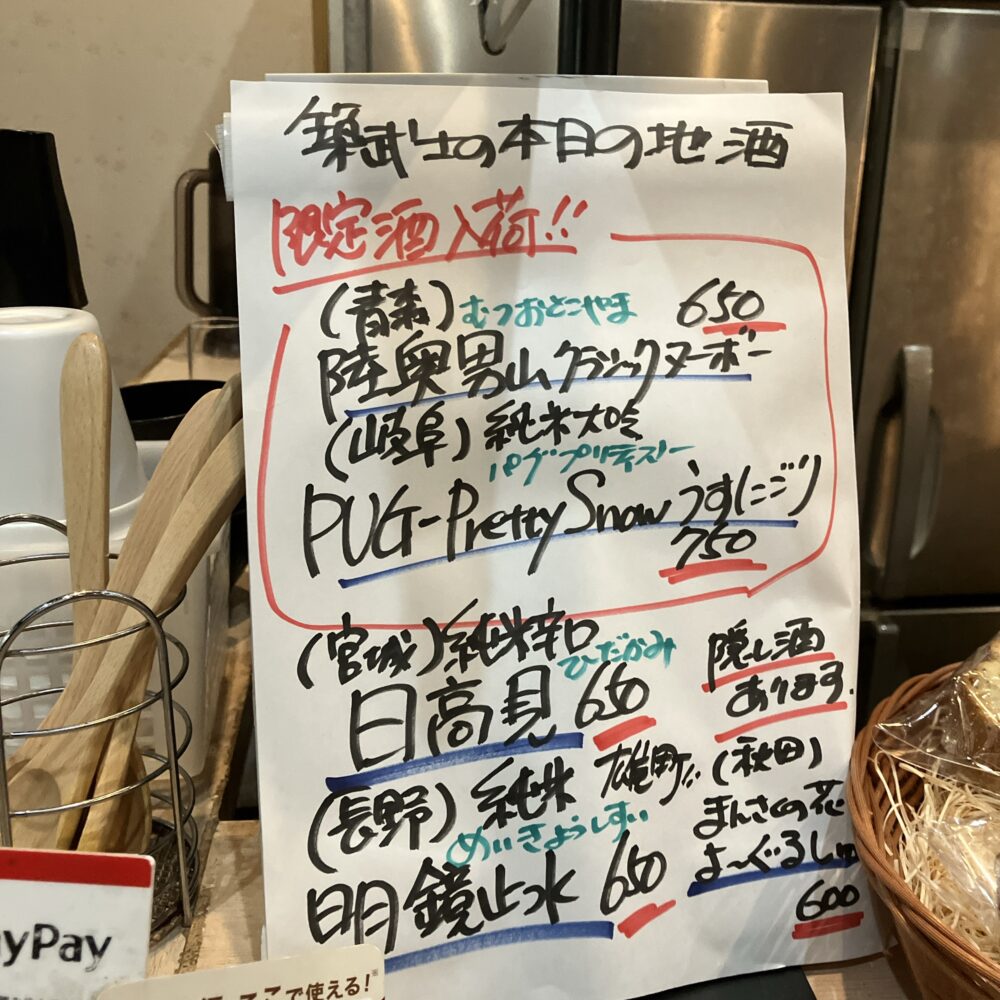 築武士の本日の地酒
限定酒入荷!!
(青森) むつおとこやま 650
陸奥男山クラシックヌーボー
(岐阜) 純米大吟
パグプリティスノー
PUG-Pretty Snow うすにごり
750
(宮城) 純米辛口
ひだかみ
日高見 650
(長野) 純米 雄町!!
めいきょうしすい
明鏡止水 650
隠し酒
あります.
(秋田)
まんさくの花
よ〜ぐるしゅ
600
ayPay
ここで使える!